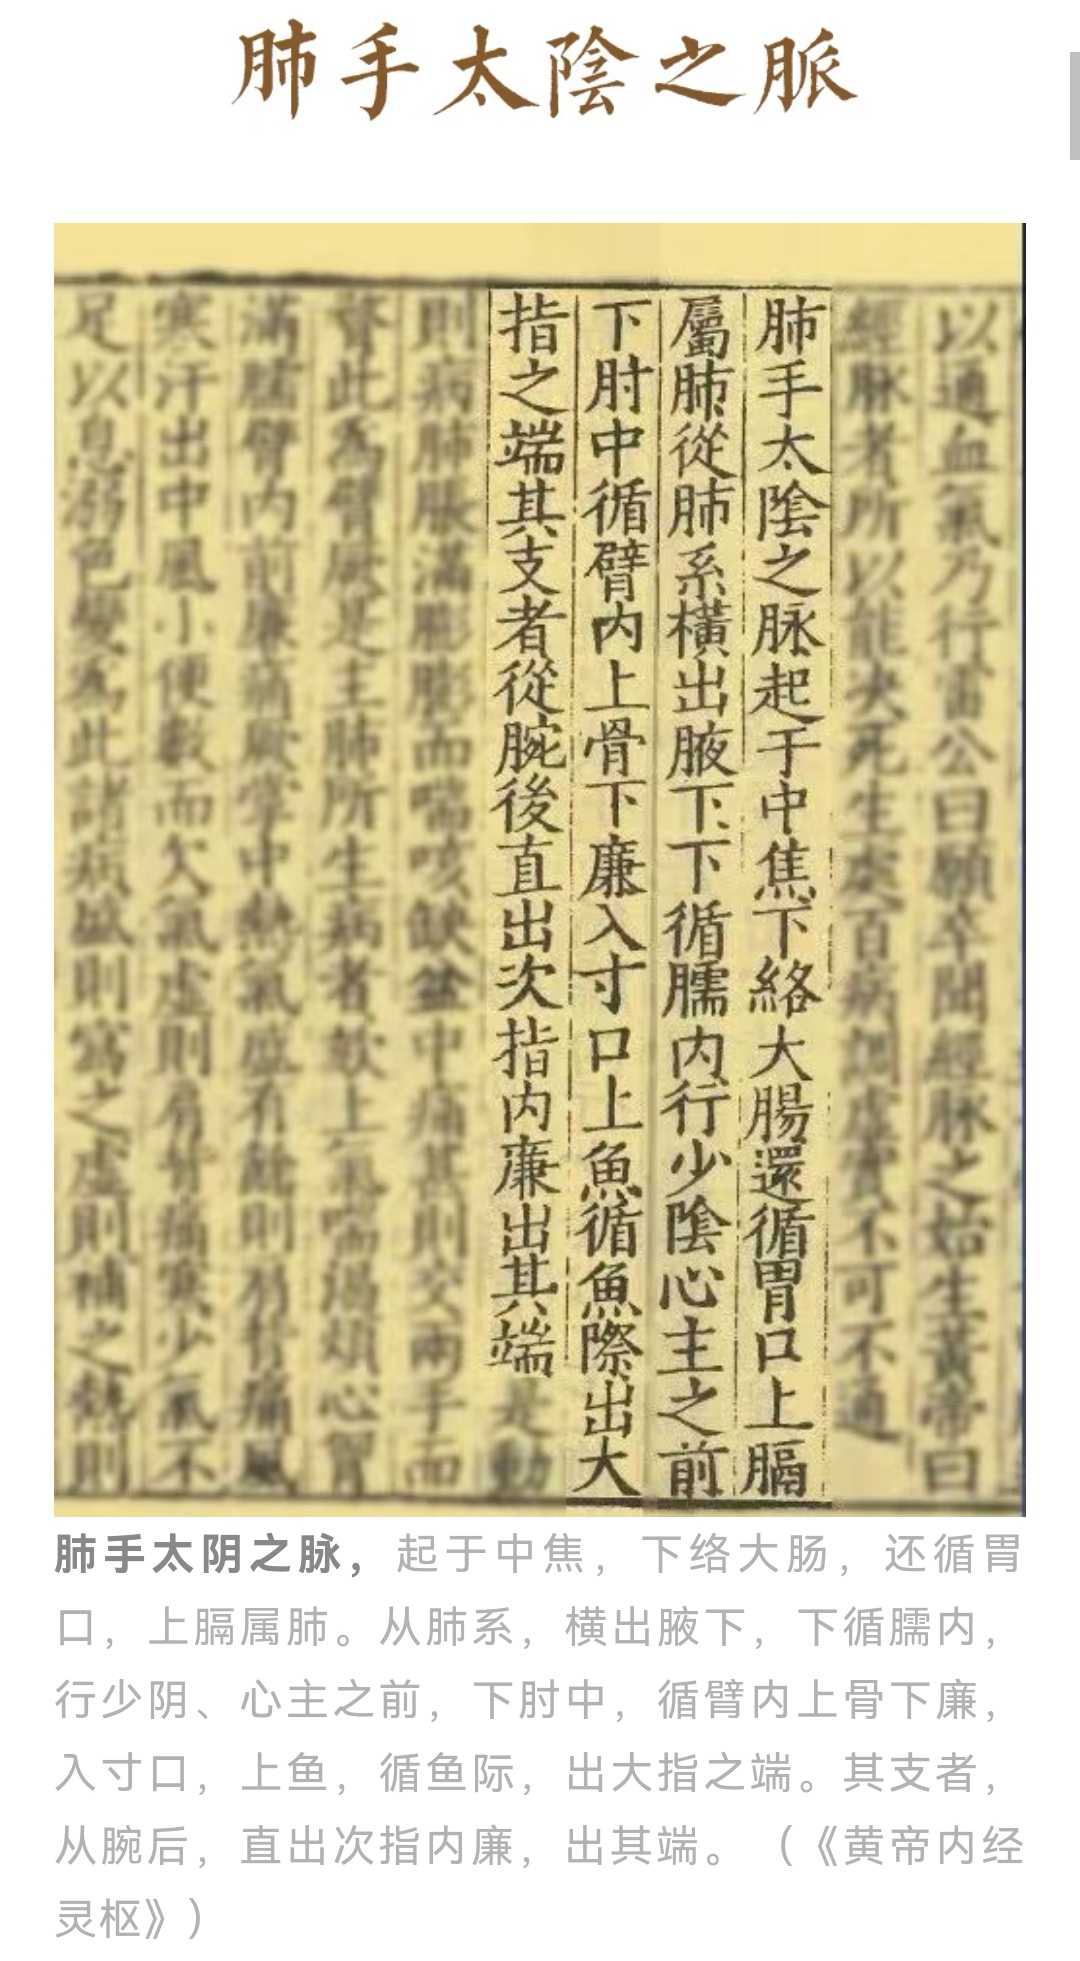 肺手太陰之脈
以通血氣乃行雷公曰願卒聞經脉之始生黃帝曰
經脉者所以能决死生處百病調虛實不可不通
肺手太陰之脉起于中焦下絡大腸還循胃口上膈
屬肺從肺系橫出腋下下循臑内行少陰心主之前
下肘中循臂内上骨下廉入寸口上魚循魚際出大
指之端其支者從腕後直出次指内廉出其端是動
則病肺脹滿膨膨而喘咳缺盆中痛甚則交兩手而
瞀此為臂厥是主肺所生病者欬上氣喘渴煩心胷
滿臑臂内前廉痛厥掌中熱氣盛有餘則肩背痛風
寒汗出中風小便數而欠氣虛則肩背痛寒少氣不
足以息溺色變為此諸病盛則寫之虛則補之熱則
肺手太阴之脉，起于中焦，下络大肠，还循胃
口，上膈属肺。从肺系，横出腋下，下循臑内，
行少阴、心主之前，下肘中，循臂内上骨下廉，
入寸口，上鱼，循鱼际，出大指之端。其支者，
从腕后，直出次指内廉，出其端。（《黄帝内经
灵枢》）